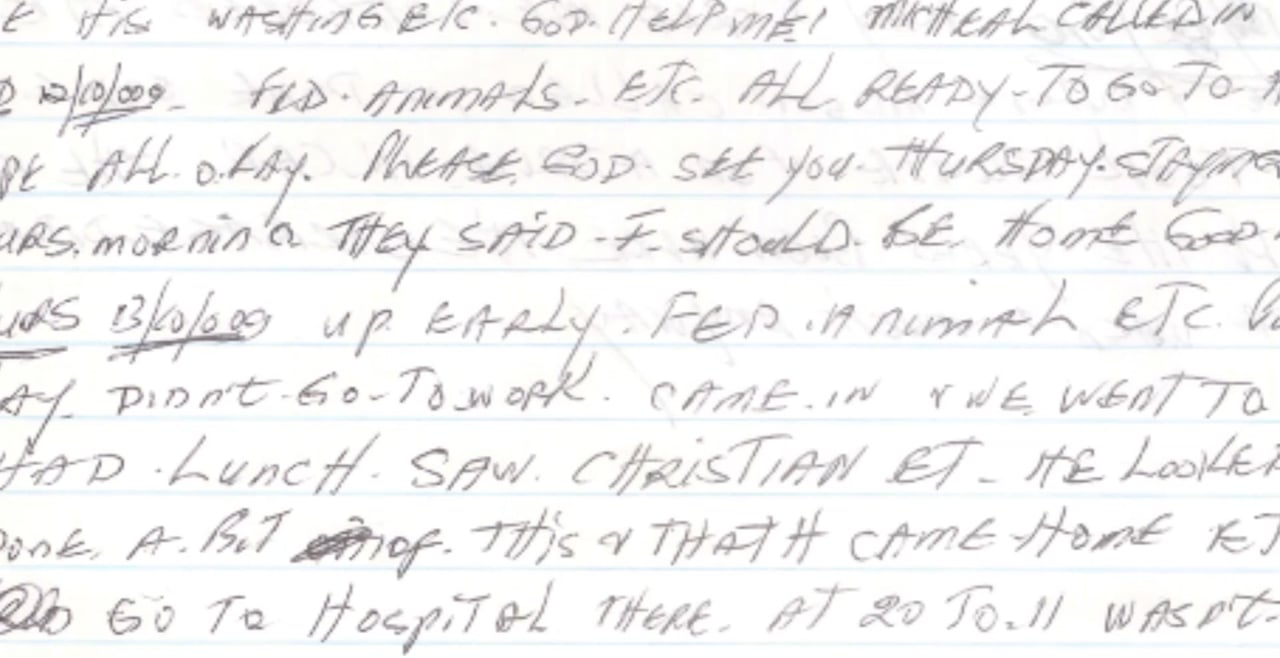 & HIS WASHING ETC. GOD. HELP ME! MICHEAL CALLED IN
D 12/10/009. FED. ANIMALS. ETC. ALL READY-TO GO TO
PE ALL O.KAY. PLEASE GOD. SEE YOU. THURSDAY. STAYING
URS. MORNING THEY SAID - I. SHOULD. BE. HOME GOOD
URS 13/10/009 UP. EARLY. FED. ANIMAL ETC.
AY DIDN'T-GO-TO WORK. CAME. IN & WE WENT TO
HAD. LUNCH. SAW. CHRISTIAN ET- HE LOOKED
DONE. A. BIT OF. THIS & THAT H CAME-HOME ET
GO TO HOSPITAL THERE. AT 20 TO.11 WASN'T-